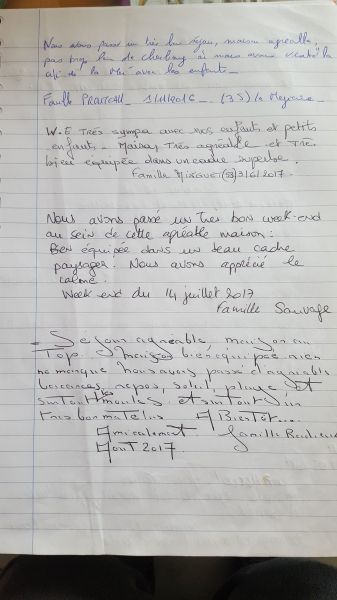 Nous avons passé un très bon séjour, maison agréable,
pas trop loin de cherbourg où nous avons visité la
cité de la Mer avec les enfants -
Famille 1/11/2016 - (35) la
W.E Très sympa avec nos enfants et petits
enfants. Maison Très agréable et Très
bien equipée dans un cadre superbe.
Famille (53) 3/6/2017.
Nous avons passé un Tres bon week-end
au sein de cette agréable maison:
Bien équipée dans un beau cadre
paysager. Nous avons apprécié le
calme.
Week end du 14 juillet 2017
Famille Sauvage
- Sejour agréable, maison au
Top. bien equipée rien
ne manque nous avons passé d'agréable
vacances, repos, soleil, plage et
surtout les moules et surtout un
tres bon matelas A Bientôt...
Amicalement. famille
Aout 2017.